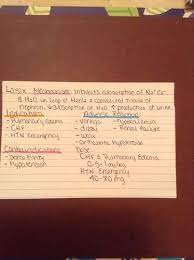 Lasix Mechanism: inhibits absorption of Na+ Cl-
& H2O in Loop of Henle & convoluted tubule of
nephron. ↓absorption of H2O ↑ production of urine.
Indications Adverse Reaction
- Pulmonary edema - vertigo - hypokalemia
- CHF - dizzy - Renal failure
- HTN Emergency - weak
- orthostatic hypotension
Contraindications Dose
- Sensitivity CHF & Pulmonary Edema
- Hypotension 0.5-1mg/kg
HTN Emergency
40-80mg